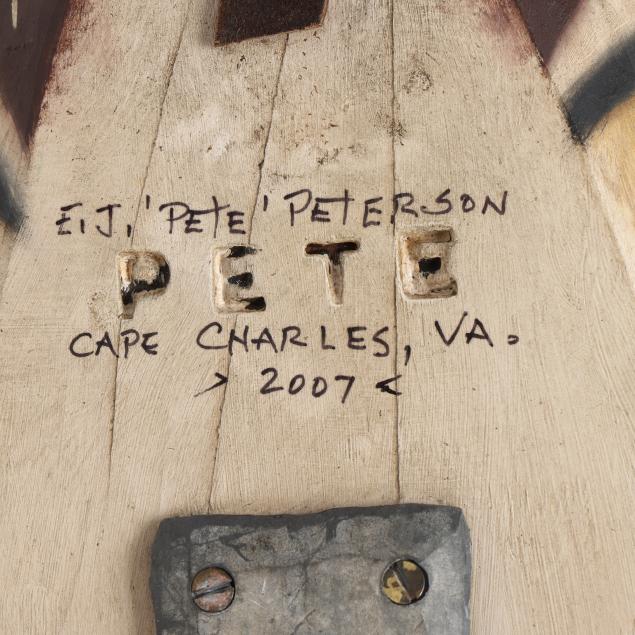 E.J. 'PETE' PETERSON
PETE
CAPE CHARLES, VA.
> 2007 <